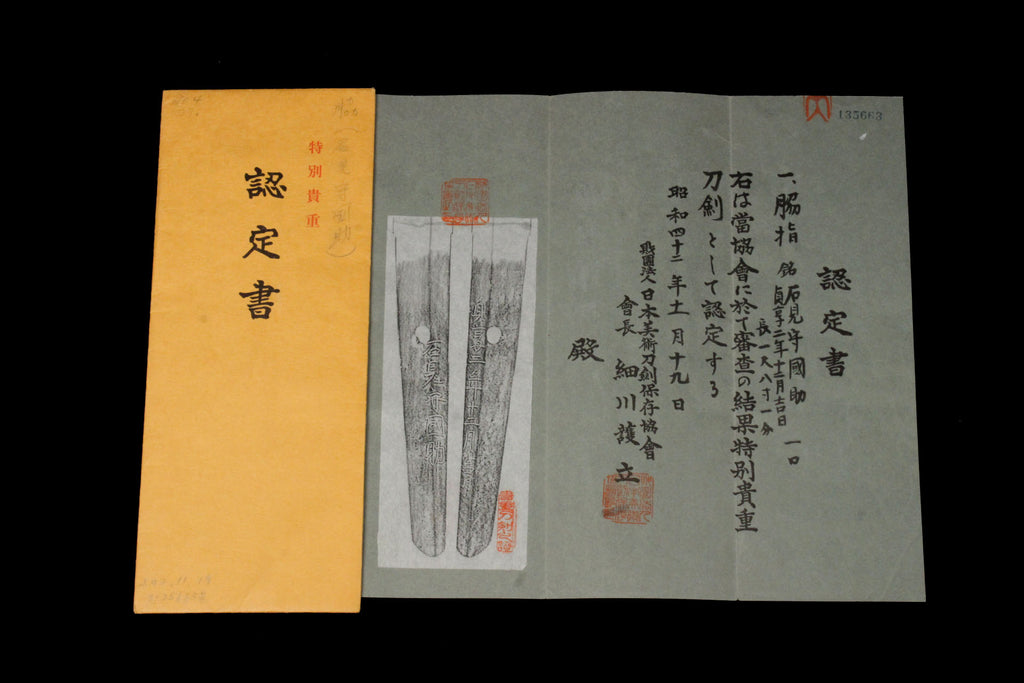 特別貴重
認定書
135663
認定書
一、脇指 銘 石見守國助 一口
貞享二年十二月吉日
長一尺八寸一分
右は當協會に於て審査の結果特別貴重
刀劍として認定する
昭和四十二年十一月十九日
財團法人日本美術刀劍保存協會
會長 細川護立
殿